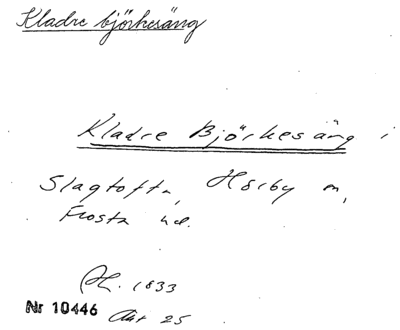 Kladre björkesäng
Kladre Björkesäng i
Slagtofta, Hörby sn,
Frosta hd.
1833
Nr 10446 Akt 25